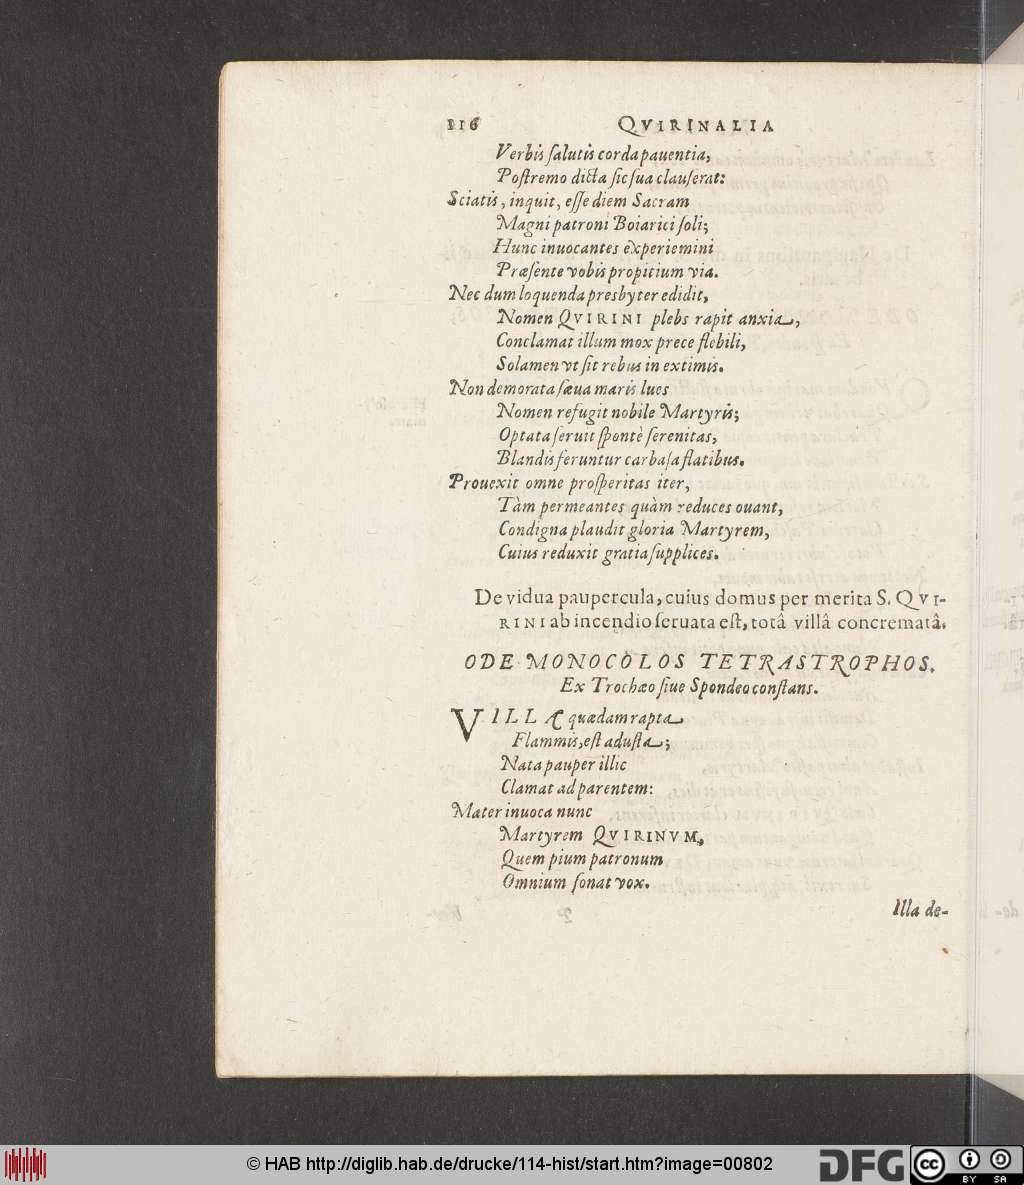 116 QVIRINALIA
Verbis ſalutis corda pauentia,
Poſtremo dicta ſic ſua clauſerat:
Sciatis, inquit, eſſe diem Sacram
Magni patroni Boiarici ſoli;
Hunc inuocantes experiemini
Præſente vobis propitium via.
Nec dum loquenda presbyter edidit,
Nomen QVIRINI plebs rapit anxia,
Conclamat illum mox prece flebili,
Solamen vt ſit rebus in extimis.
Non demorata ſæua maris lues
Nomen refugit nobile Martyris;
Optata ſeruit ſpontè ſerenitas,
Blandis feruntur carbaſa flatibus.
Prouexit omne proſperitas iter,
Tàm permeantes quàm reduces ouant,
Condigna plaudit gloria Martyrem,
Cuius reduxit gratia ſupplices.
De vidua paupercula, cuius domus per merita S. QVI-
RINI ab incendio ſeruata eſt, totâ villâ concrematâ.
ODE MONOCOLOS TETRASTROPHOS.
Ex Trochæo ſiue Spondeo conſtans.
VILLÆ quædam rapta
Flammis, eſt aduſta;
Nata pauper illic
Clamat ad parentem:
Mater inuoca nunc
Martyrem QVIRINVM,
Quem pium patronum
Omnium ſonat vox.
Illa de-
© HAB http://diglib.hab.de/drucke/114-hist/start.htm?image=00802
DFG
cc
BY SA